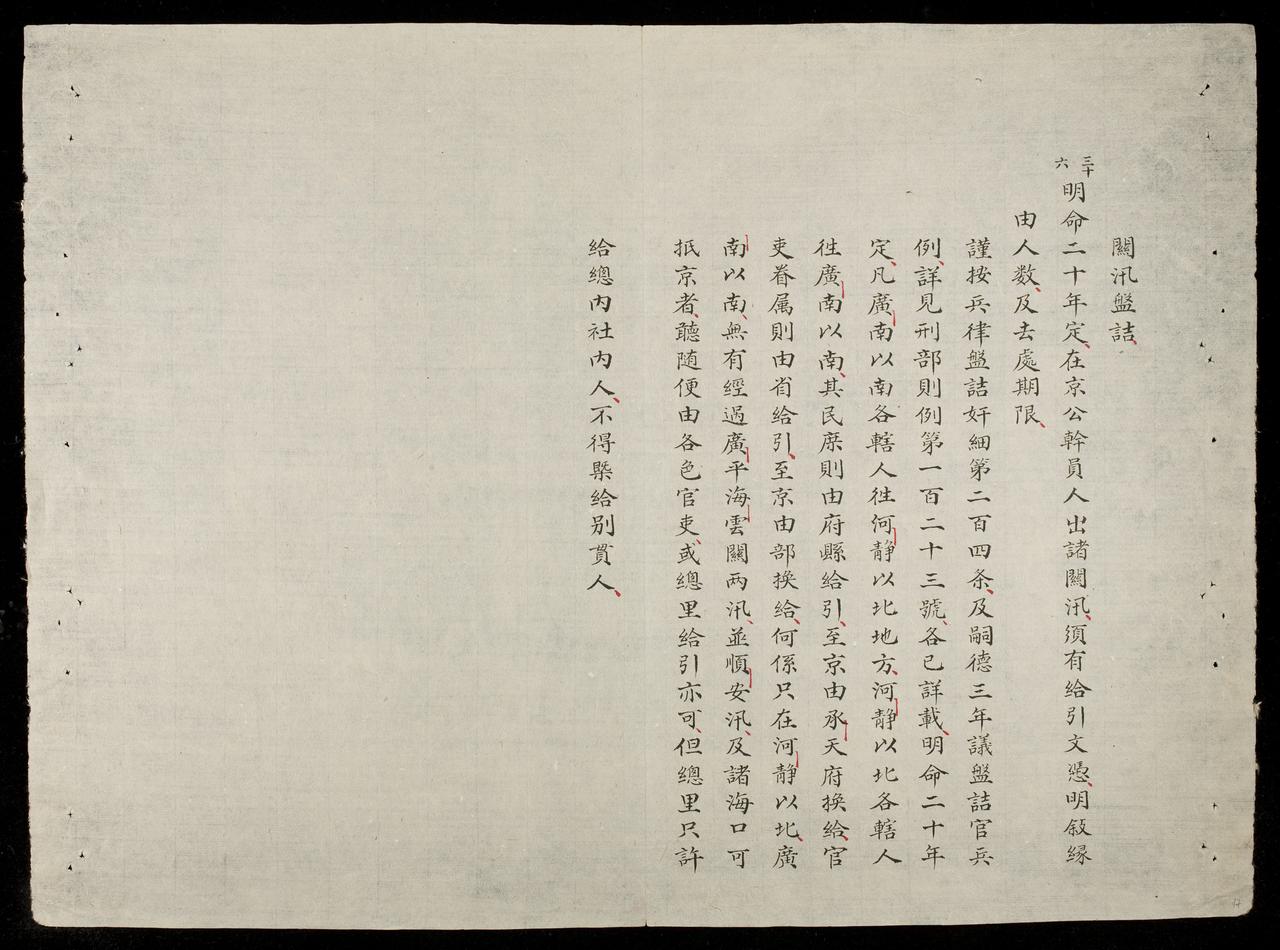 關汛盤詰
三十六
明命二十年定在京公幹員人出諸關汛須有給引文憑明叙縁
由人数及去處期限
謹按兵律盤詰奸細第二百四条及嗣德三年議盤詰官兵
例詳見刑部則例第一百二十三號各已詳載明命二十年
定凡廣南以南各轄人徃河静以北地方河静以北各轄人
徃廣南以南其民庶則由府縣給引至京由承天府換給官
吏眷属則由省給引至京由部換給何係只在河静以北廣
南以南無有經過廣平海雲關两汛並順安汛及諸海口可
抵京者聽随便由各色官吏或總里給引亦可但總里只許
給總内社内人不得槩給别貫人